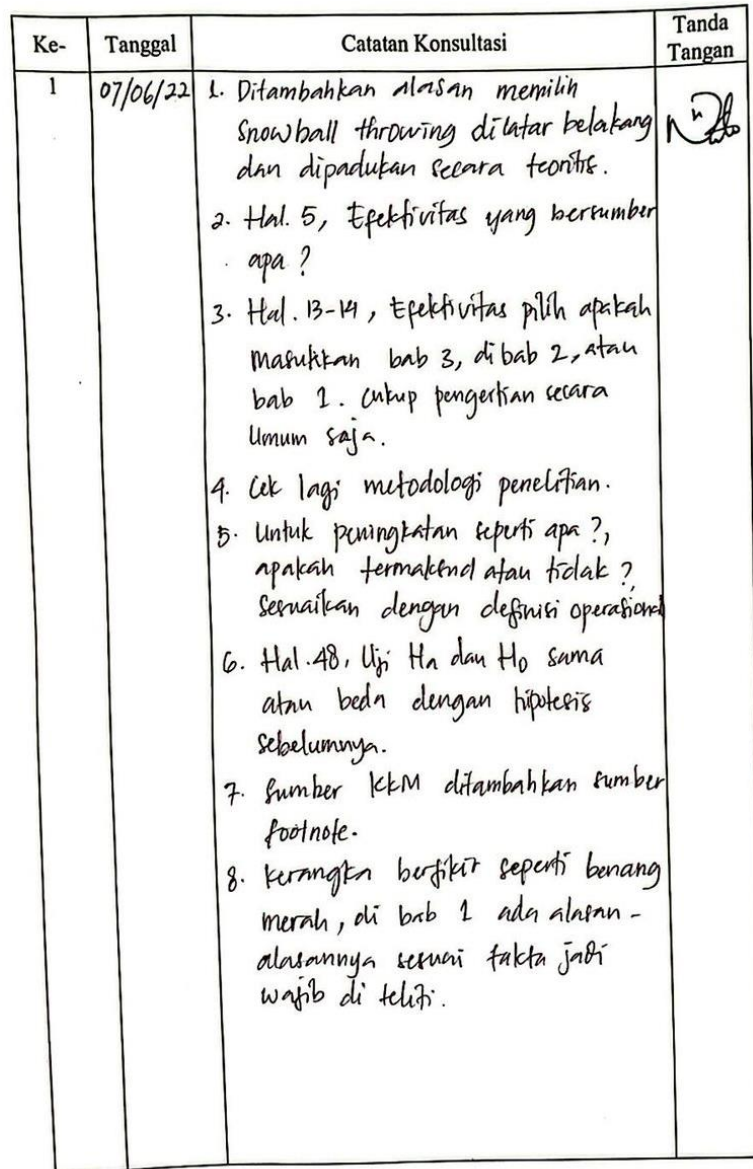 Ke- Tanggal Catatan Konsultasi Tanda Tangan
1 07/06/22 1. Ditambahkan alasan memilih
Snowball throwing dilatar belakang
dan dipadukan secara teoritis.
2. Hal. 5, Efektivitas yang bersumber
apa ?
3. Hal. 13-14, Efektivitas pilih apakah
masukkan bab 3, di bab 2, atau
bab 1. Cukup pengertian secara
Umum saja.
4. Cek lagi metodologi penelitian.
5. Untuk peningkatan seperti apa ?,
apakah termaksud atau tidak ?
Sesuaikan dengan definisi operasional
6. Hal. 48, Uji Ha dan Ho sama
atau beda dengan hipotesis
sebelumnya.
7. Sumber KKM ditambahkan sumber
footnote.
8. Kerangka berfikir seperti benang
merah, di bab 1 ada alasan-
alasannya sesuai fakta jadi
wajib di teliti.